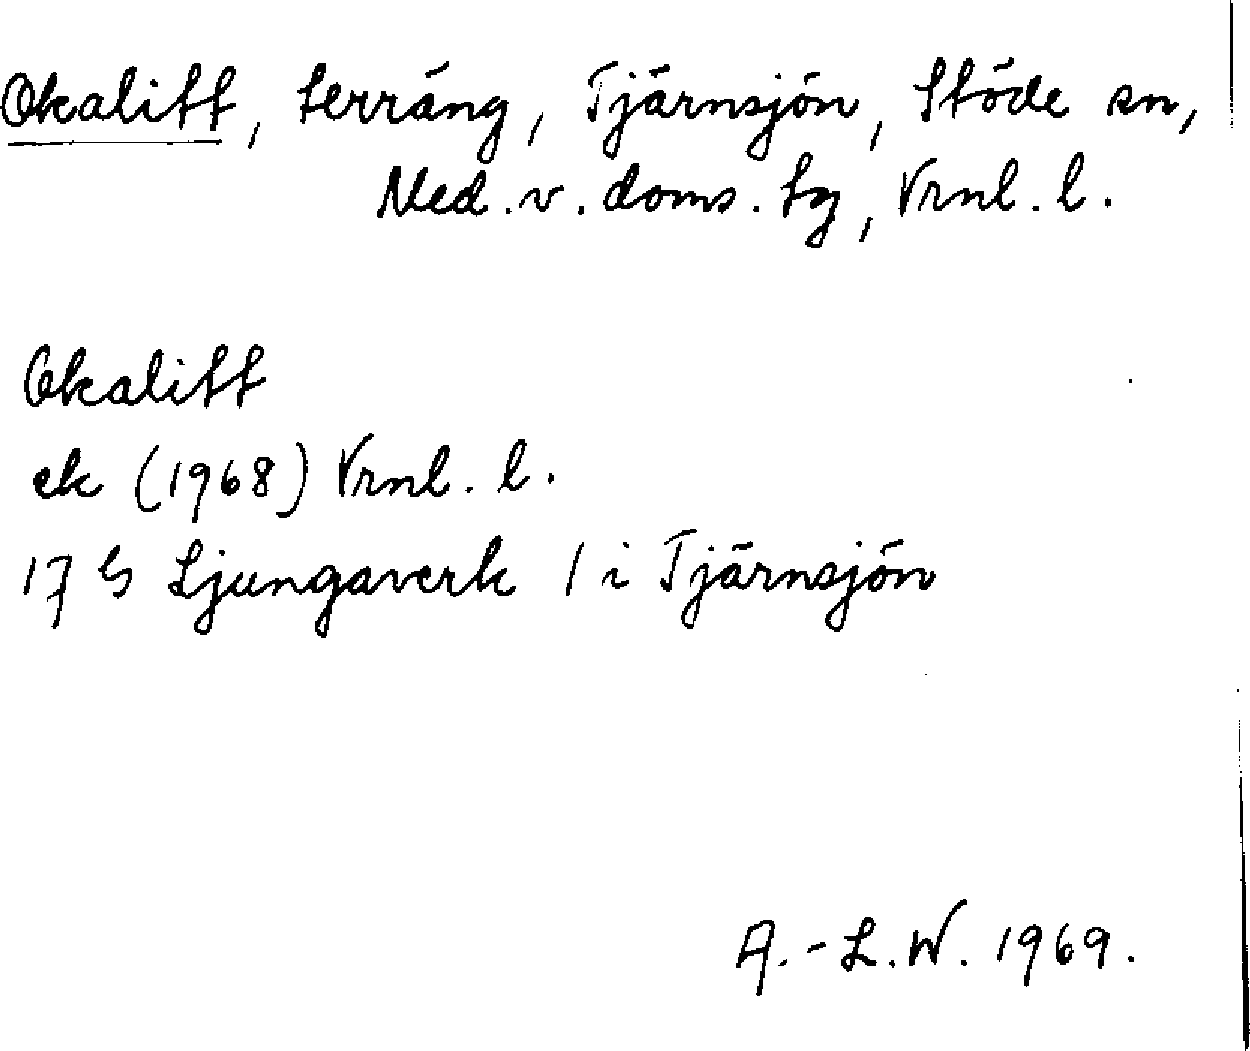 Okalitt, terräng, Tjärnsjön, Stöde sn,
Med. v. doms. tg, Vrnl. l.
Okalitt
ek (1968) Vrnl. l.
17 G Ljungaverk 1 i Tjärnsjön
A.-L.W. 1969.